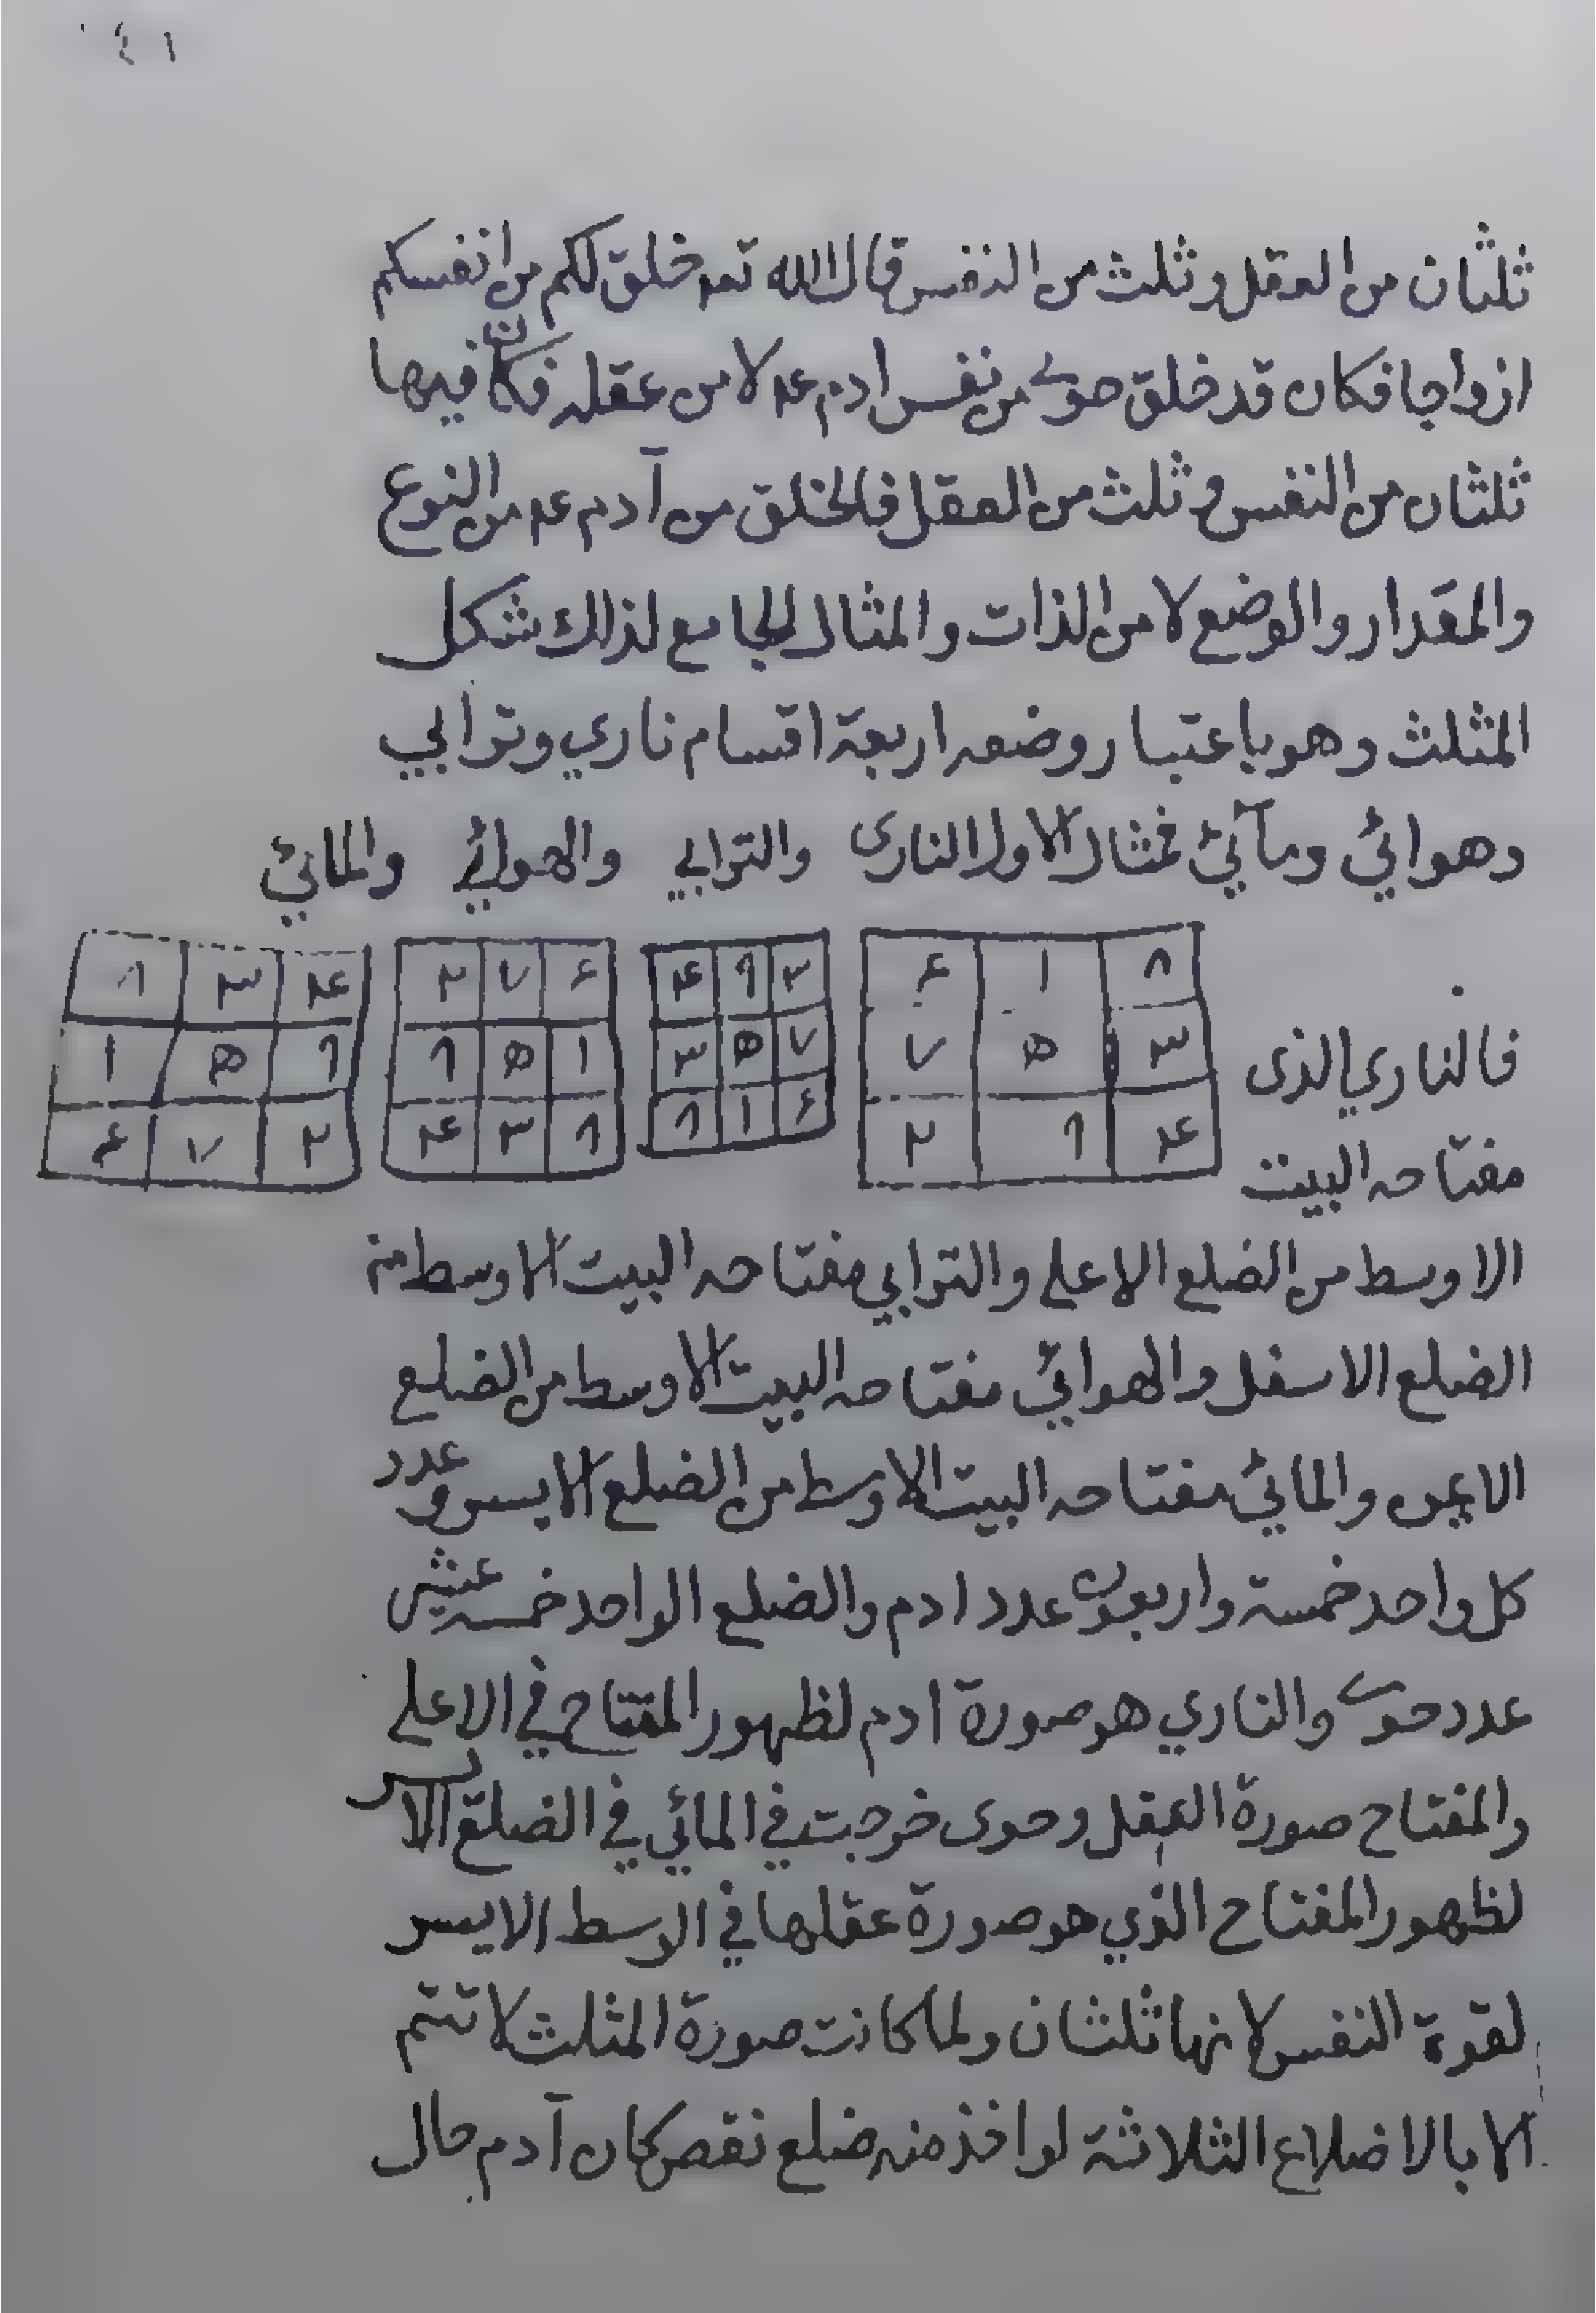 ٤١
ثلثان من العقل وثلث من النفس قال الله تعه خلق لكم من انفسكم
ازواجا فكان قد خلق حوى من نفس ادم عه لا من عقله فكان فيها
ثلثان من النفس وثلث من العقل فالخلق من آدم عه من النوع
والمقدار والوضع لا من الذات والمثال الجامع لذلك شكل
المثلث وهو باعتبار وضعه اربعة اقسام ناري وترابي
وهوائي ومآئي فمثال الاول النارى والترابي والهوائي والمائي
٨ ١ ۶ ٣ ٩ ۴ ۶ ٧ ٢ ۴ ٣ ٨
فالناري الذى ٣ ۵ ٧ ٧ ۵ ٣ ١ ۵ ٩ ٩ ۵ ١
مفتاحه البيت ۴ ٩ ٢ ۶ ١ ٨ ٨ ٣ ۴ ٢ ٧ ۶
الاوسط من الضلع الاعلى والترابي مفتاحه البيت الاوسط من
الضلع الاسفل والهوائي مفتاحه البيت الاوسط من الضلع
الايمن والمائي مفتاحه البيت الاوسط من الضلع الايسر وعدد
كل واحد خمسة واربعون عدد ادم والضلع الواحد خمسه عشر
عدد حوى والناري هو صورة ادم لظهور المفتاح في الاعلى
والمفتاح صورة العقل وحوى خرجت في المائي في الضلع الايسر
لظهور المفتاح الذي هو صورة عقلها في الوسط الايسر
لقوة النفس لانها ثلثان ولما كانت صورة المثلث لا تتم
الا بالاضلاع الثلاثة لو اخذ منه ضلع نقص كان آدم حال